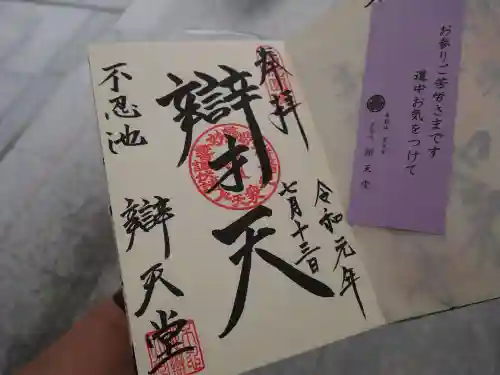 奉拝
辯才天
令和元年
七月十三日
不忍池
辯天堂
お参りご苦労さまです
道中お気をつけて
辯天堂